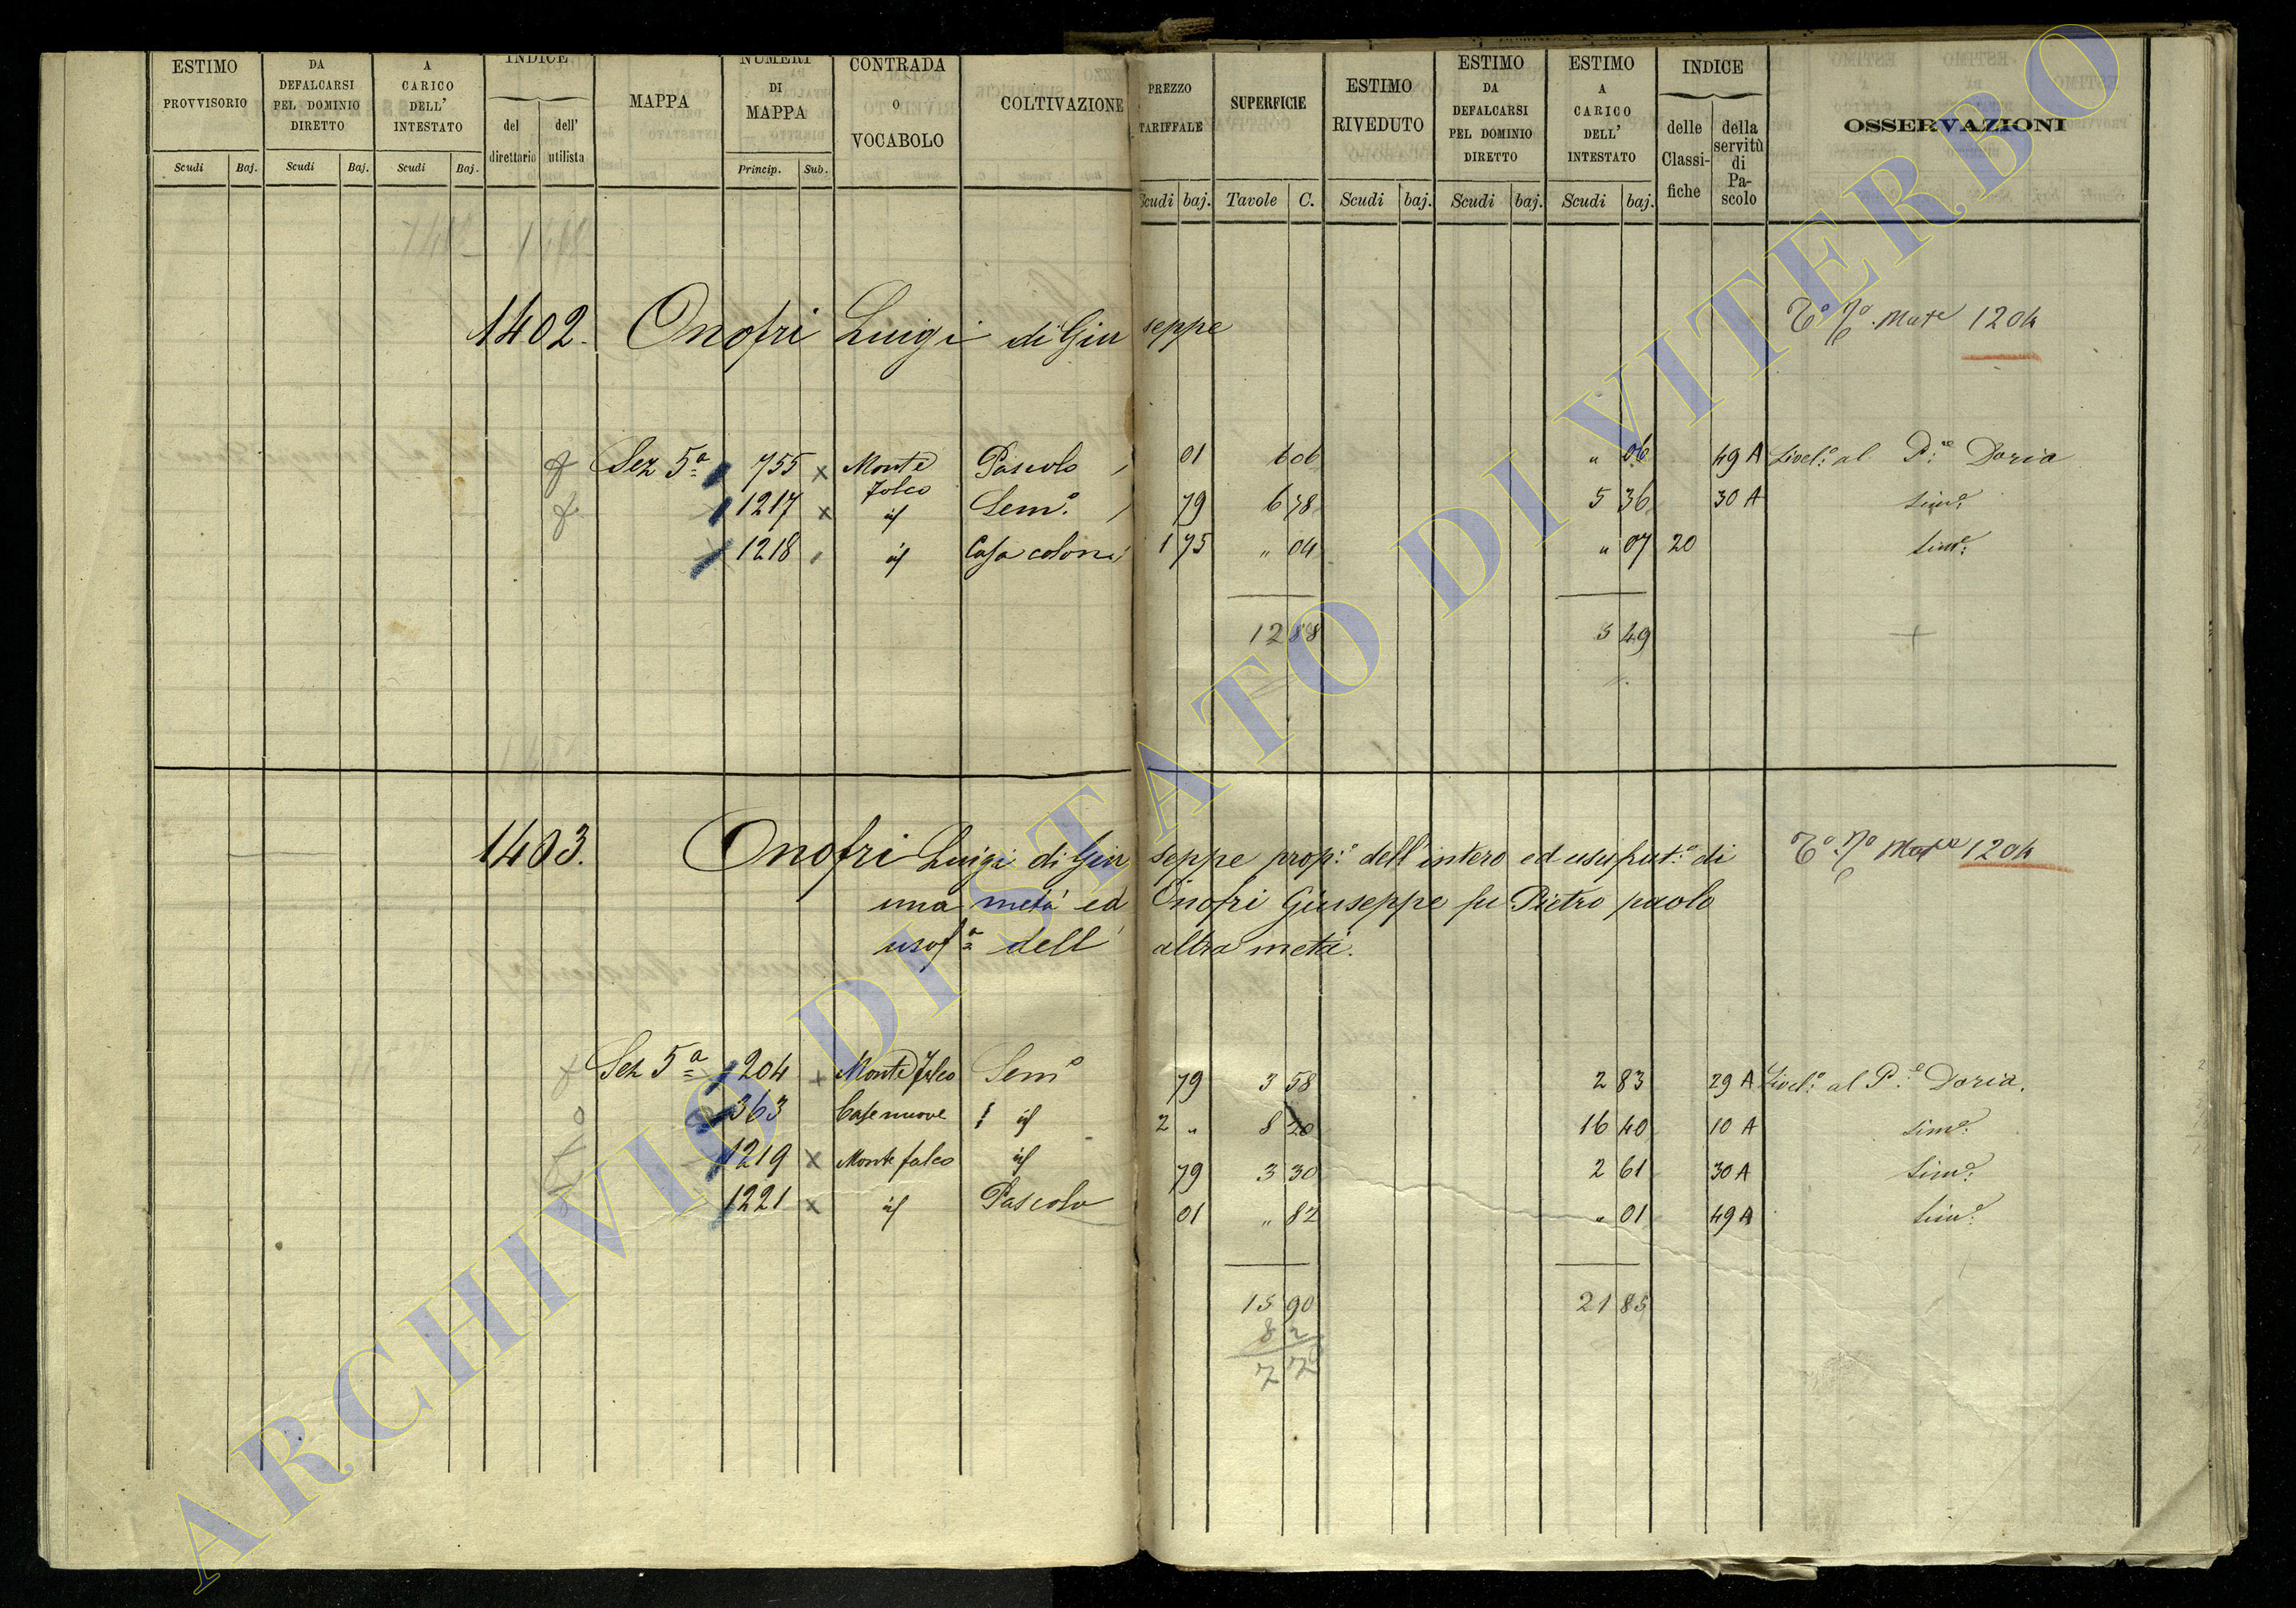 ESTIMO PROVVISORIO
Scudi Baj.
DA DEFALCARSI PEL DOMINIO DIRETTO
Scudi Baj.
A CARICO DELL' INTESTATO
Scudi Baj.
INDICE
del direttario
dell' utilista
MAPPA
NUMERI DI MAPPA
Princip. Sub.
CONTRADA O VOCABOLO
COLTIVAZIONE
PREZZO TARIFFALE
Scudi baj.
SUPERFICIE
Tavole C.
ESTIMO RIVEDUTO
Scudi baj.
ESTIMO DA DEFALCARSI PEL DOMINIO DIRETTO
Scudi baj.
ESTIMO A CARICO DELL' INTESTATO
Scudi baj.
INDICE
delle Classifiche
della servitù di Pascolo
OSSERVAZIONI
1402. Onofri Luigi di Giuseppe 1204
Sez 5ª 755 x Monte Falco Pascolo 01 6 06 " 06 49 A Livel.º al P.e Doria
1217 x id Sem.º 79 6 78 5 36 30 A sim.e
1218 id Casa colonª 1 75 " 04 " 07 20 sim.e
12 88 5 49
1403. Onofri Luigi di Giuseppe prop.º dell'intero ed usufrut.º di 1204
una metà ed Onofri Giuseppe fu Pietro paolo
usofª dell' altra metà.
Sez 5ª 204 x Monte Falco Sem.º 79 3 58 2 83 29 A Livel.º al P.e Doria.
363 Casenuove id 2 " 8 20 16 40 10 A sim.e
1219 x Monte falco id 79 3 30 2 61 30 A sim.e
1221 x id Pascolo 01 " 82 " 01 49 A sim.e
15 90 21 85
8 2
7 7
ARCHIVIO DI STATO DI VITERBO